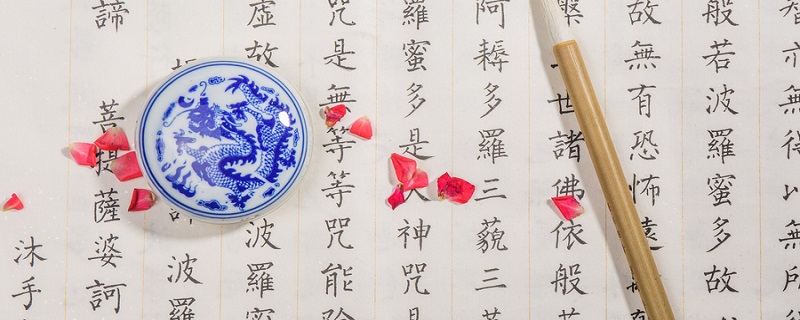 亦無得以無所
般若波羅蜜多故
故無有恐怖遠
槃世諸佛依般
阿耨多羅三藐三
羅蜜多是神咒是
咒是無等等咒能除
虛故波羅
波羅
諦菩提薩婆訶
沐手